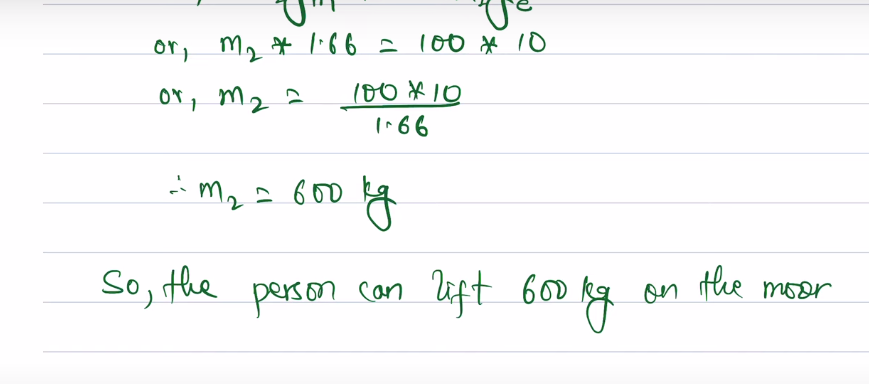 or, m₂ * 1.66 = 100 * 10
or, m₂ = 100 * 10 / 1.66
∴ m₂ = 600 kg
So, the person can lift 600 kg on the moon